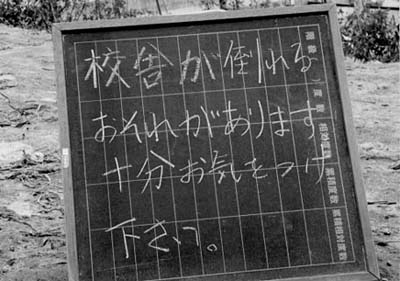 校舎が倒れる
おそれがあります
十分お気をつけ
下さい。